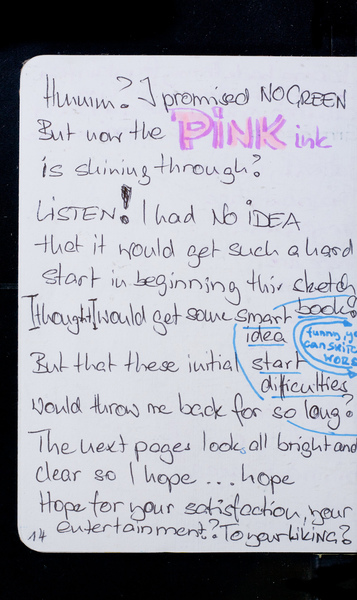 Hmmm? I promised NO GREEN
But now the PINK ink
is shining through?
LISTEN! I had NO IDEA
that it would get such a hard
start in beginning this sketch
book?
[thought] I would get some smart
idea
funny, yo
can switc
words
But that these initial start
difficulties
would throw me back for so long?
The next pages look all bright and
clear so I hope ... hope
Hope for your satisfaction, your
entertainment? To your liking?
14